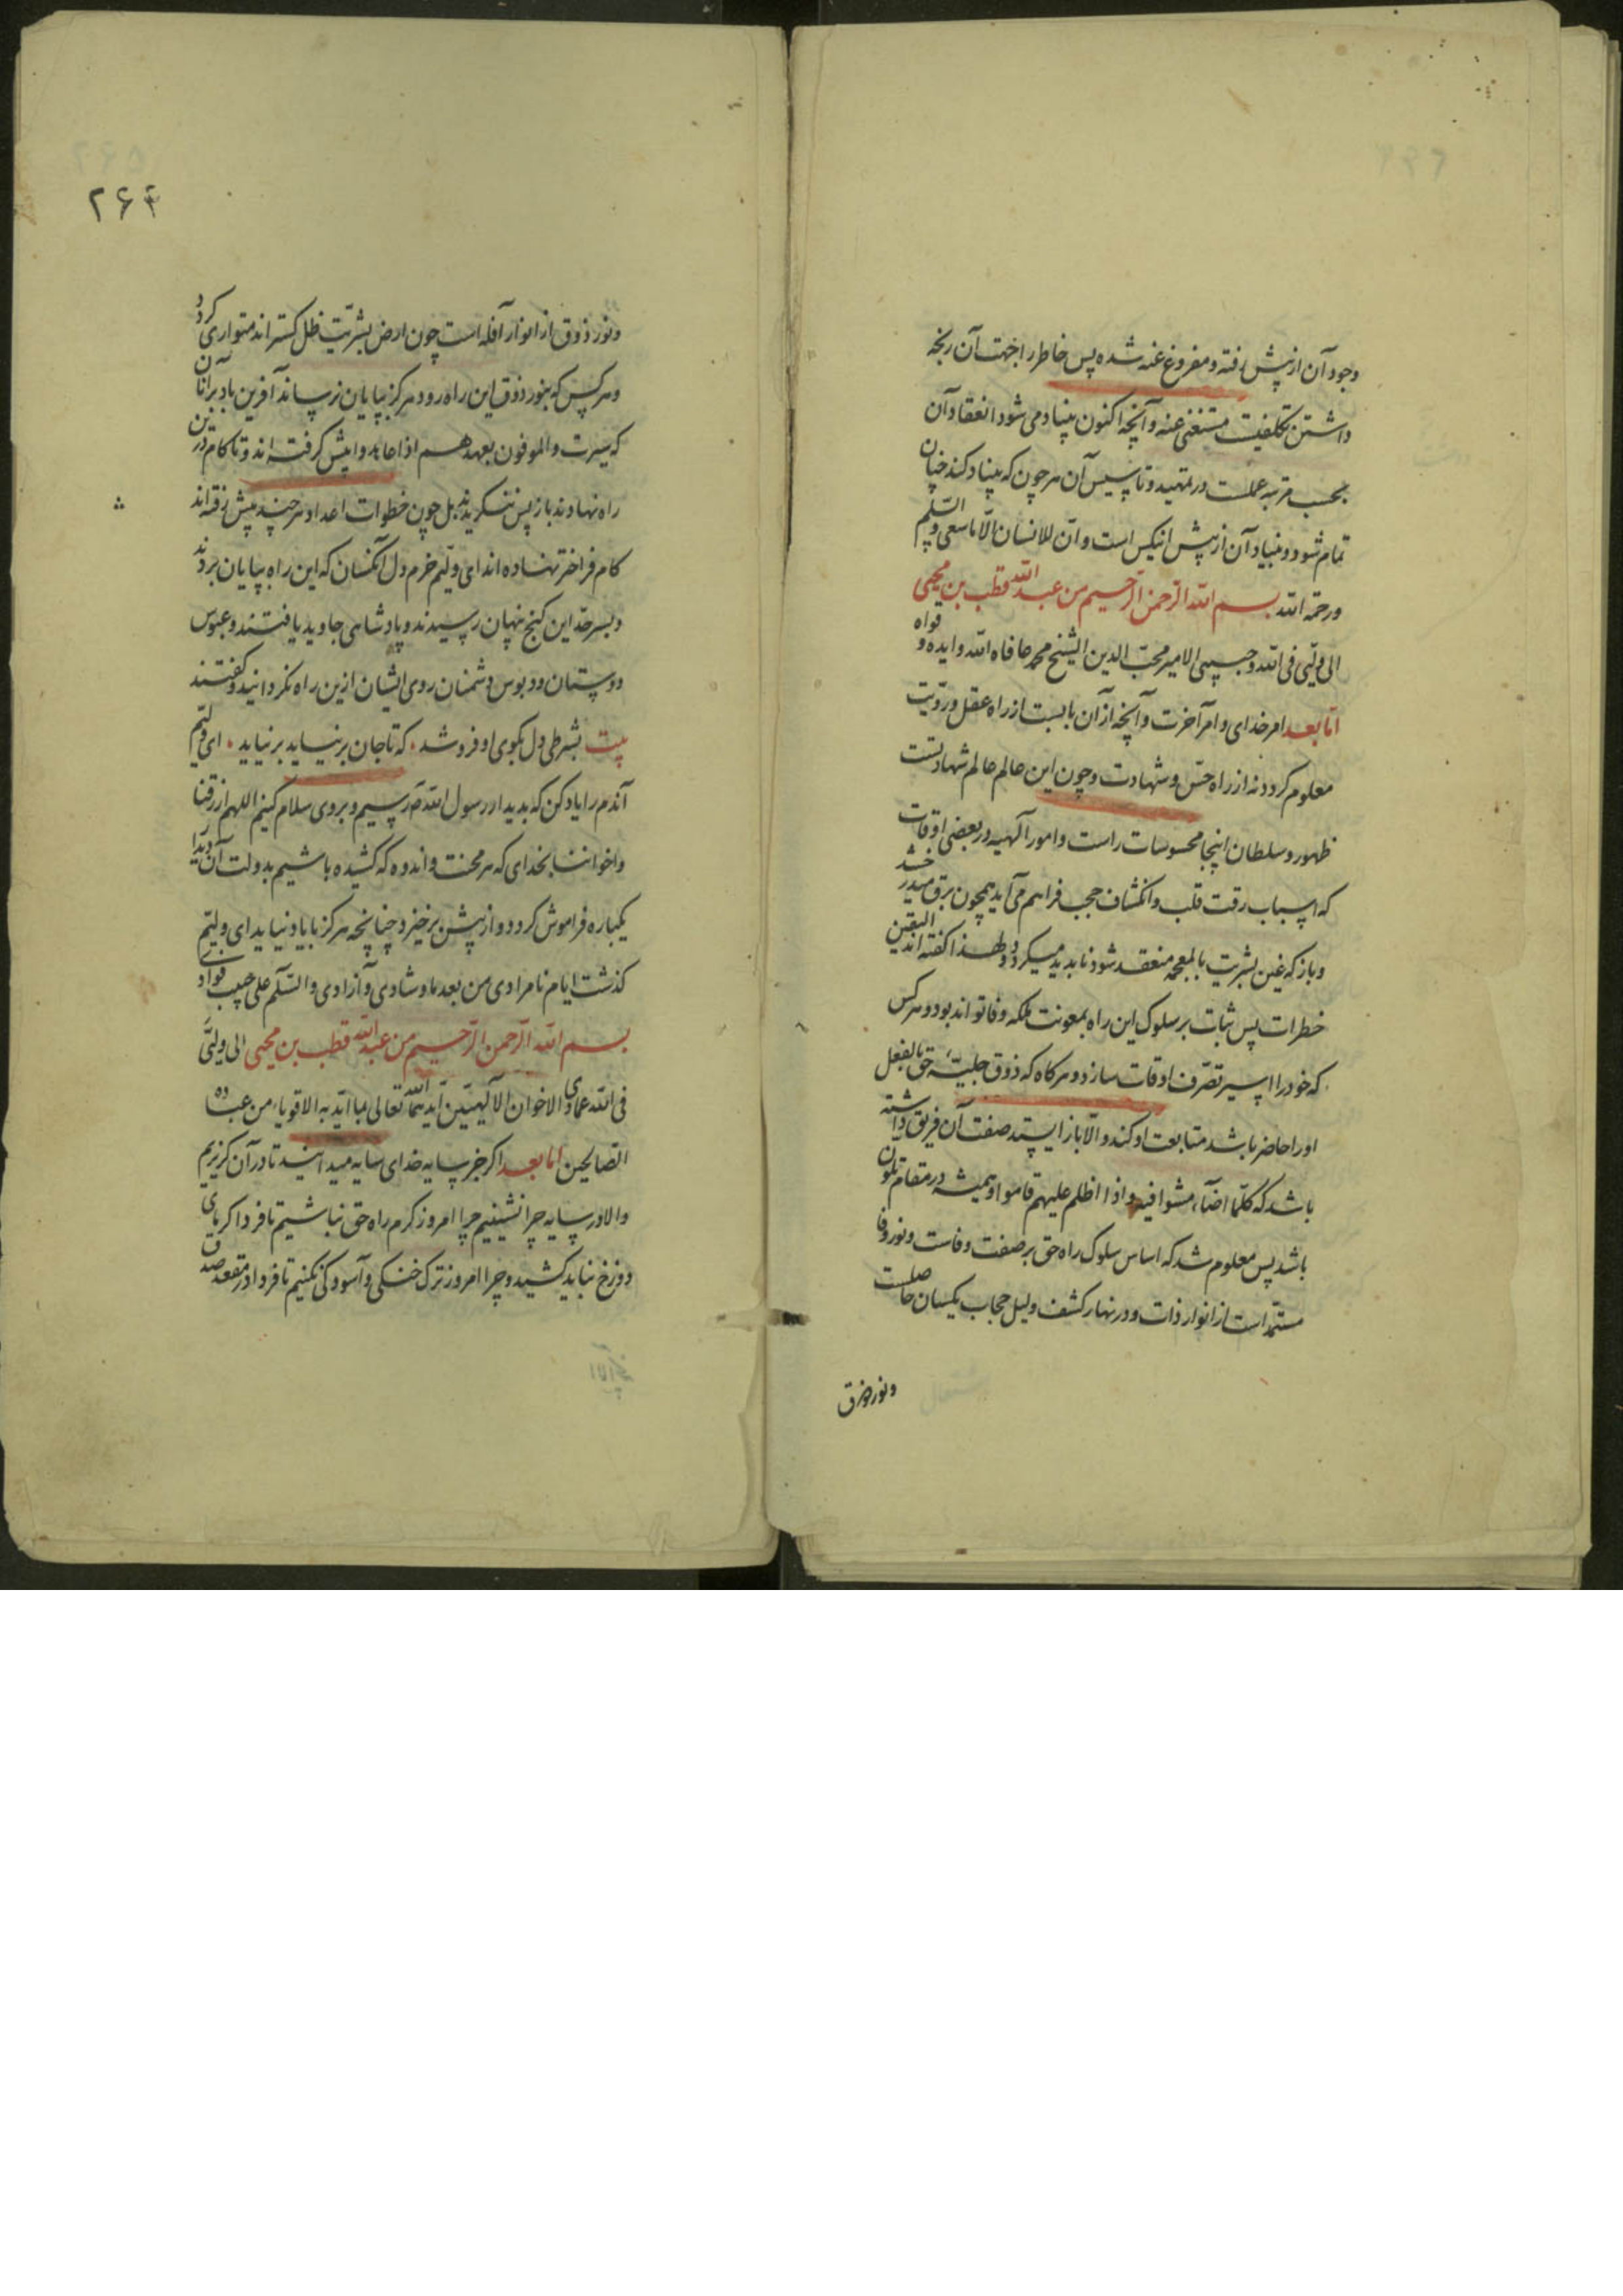 وجود آن از پیش رفته و مفروغ عنه شده پس خاطر را جهت آن رنجه
داشتن تکلیفیست مستغنی عنه و آنچه اکنون بنیاد می شود انعقاد آن
بحسب مرتبه عملست در تمهید و تاسیس آن هر چون که بنیاد کند چنان
تمام شود و بنیاد آن از پیش انیکس است و ان للانسان الا ما سعی و السلم
ورحمة الله بسم الله الرحمن الرحیم من عبد الله قطب بن محیی
الی ولیی فی الله و حبیبی الامیر محب الدین الشیخ محمد عافاه الله و ایده و قواه
اما بعد امر خدای و امر آخرت و آنچه از آن بابست از راه عقل و رویت
معلوم کردد نه از راه حس و شهادت و چون این عالم عالم شهادتست
ظهور و سلطان اینجا محسوسات راست و امور الهیه در بعضی اوقات
که اسباب رقت قلب و انکشاف حجب فراهم می آید همچون برق میدرخشد
و باز که غین بشریت بالمعجمه منعقد شود ناپدید میکردد و لهذا کفته اند الیقین
خطرات پس ثبات بر سلوک این راه بمعونت ملکه وفا تواند بود و هر کس
که خود را اسیر تصرف اوقات سازد و هر کاه که ذوق جلیه حق بالفعل
او را حاضر باشد متابعت او کند و الا باز ایستد صفت آن فریق داشته
باشد که کلما اضاء مشوا فیه و اذا اظلم علیهم قاموا و همیشه در مقام تلون
باشد پس معلوم شد که اساس سلوک راه حق بر صفت وفاست و نور وفا
مستمد است از انوار ذات و در نهار کشف و لیل حجاب یکسان حاصلست
و نور ذوق
۲۶۴
و نور ذوق از انوار آفله است چون ارض بشریت ظل کستراند متواری کردد
و هر کس که بنور ذوق این راه رود هرکز بپایان نرساند آفرین باد بر آنان
که سیرت و الموفون بعهدهم اذا عاهدوا پیش کرفته اند و تا کام درین
راه نهادند باز پس ننکریدند بل چون خطوات اعداد هر چند پیش رفته اند
کام فراختر نهاده اند ای ولیم خرم دل آنکسان که این راه بپایان بردند
و بسر حد این کنج نهان رسیدند و پادشاهی جاوید یافتند و عبوس
دوستان و دبوس دشمنان روی ایشان ازین راه نکردانید و کفتند
بیت بشرطی دل بکوی او فروشد که تا جان بر نیاید بر نیاید ای ولیم
آندم را یاد کن که بدیدار رسول الله رسیم و بروی سلام کنیم اللهم ارزقنا
و اخواننا بخدای که هر محنت و اندوه که کشیده باشیم بدولت آن دیدار
یکباره فراموش کردد و از پیش برخیزد چنانچه هرکز با یاد نیاید ای ولیم
کذشت ایام نامرادی من بعد ما و شادی و آزادی و السلم علی حبیب فوادی
بسم الله الرحمن الرحیم من عبد الله قطب بن محیی الی ولیی
فی الله عمادی الاخوان الالهیین ایدهما الله تعالی بما اید به الاقویاء من عباده
الصالحین اما بعد اکر جز سایه خدای سایه میدانند تا در آن کریزیم
و الا در سایه چرا ننشینیم چرا امروز کرم راه حق نباشیم تا فردا کرمای
دوزخ نباید کشید و چرا امروز ترک خنکی و آسودکی نکنیم تا فردا در مقعد صدق